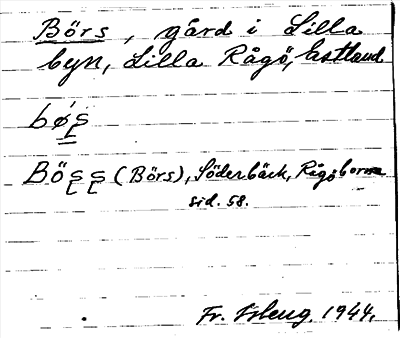 Börs, gård i Lilla
byn, Lilla Rågö, Estland
bøş
Böşş (Börs), Söderbäck, Rågöborna
sid. 58.
Fr. 1944.